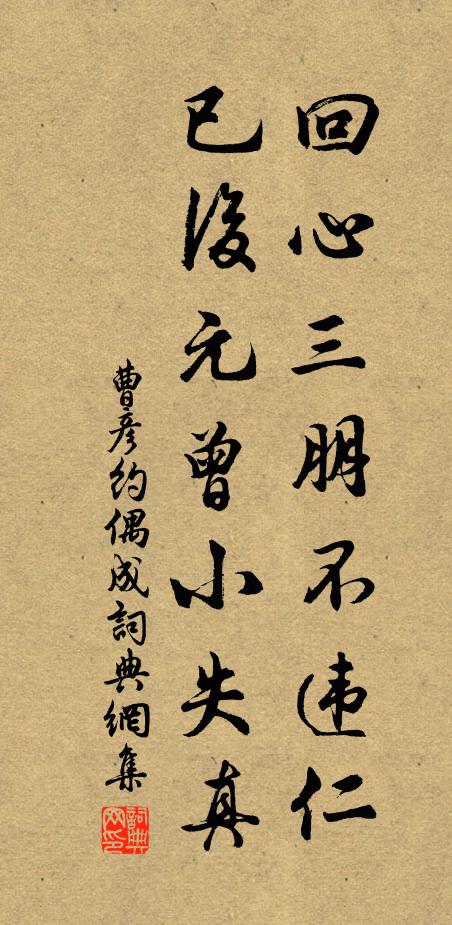 回心三朋不违仁
已後元曾小失真
曹彥約偶成詞典網集
詞典网印